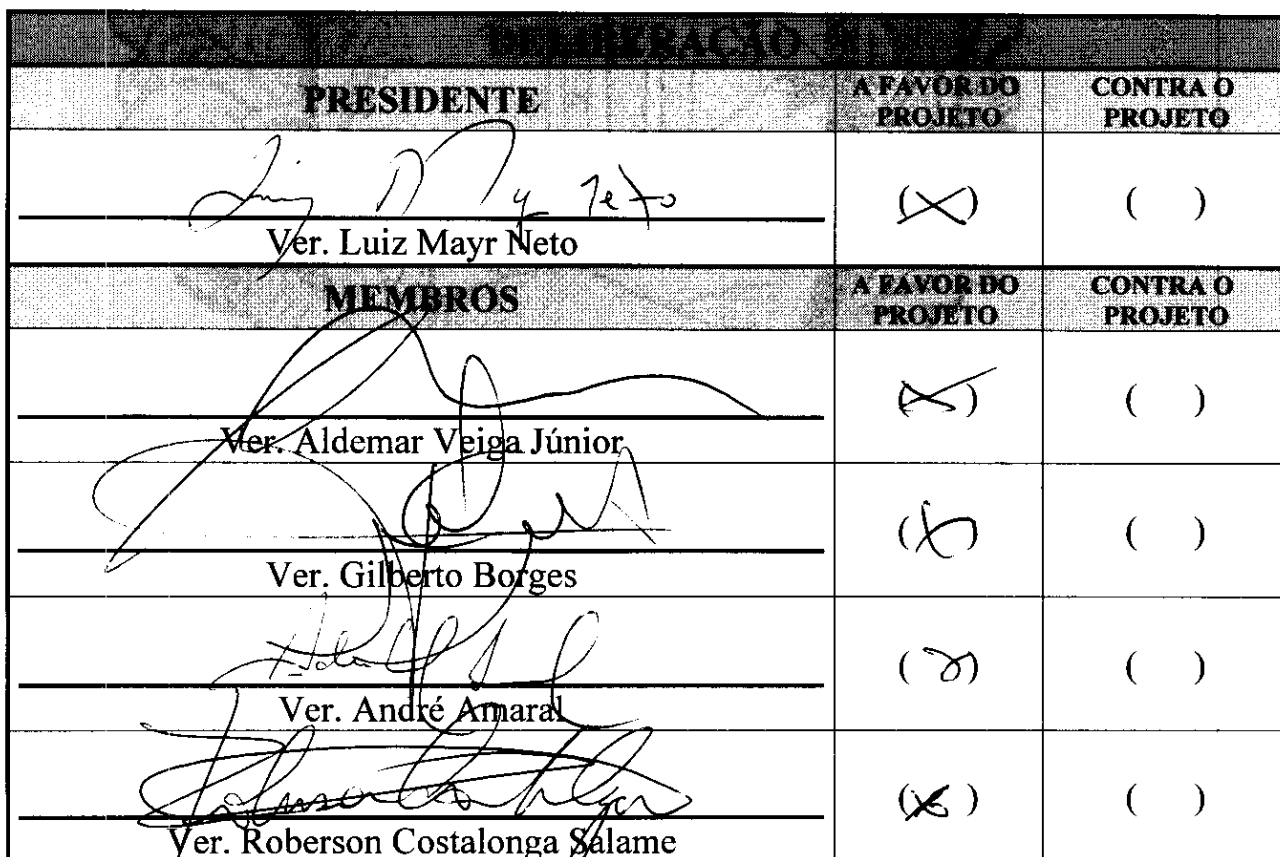 DELIBERAÇÃO
PRESIDENTE
A FAVOR DO PROJETO
CONTRA O PROJETO
Luiz Mayr Neto
(X)
( )
Ver. Luiz Mayr Neto
MEMBROS
A FAVOR DO PROJETO
CONTRA O PROJETO
(X)
( )
Ver. Aldemar Veiga Júnior
(X)
( )
Ver. Gilberto Borges
( )
Ver. André Amaral
(X)
( )
Ver. Roberson Costalonga Salame